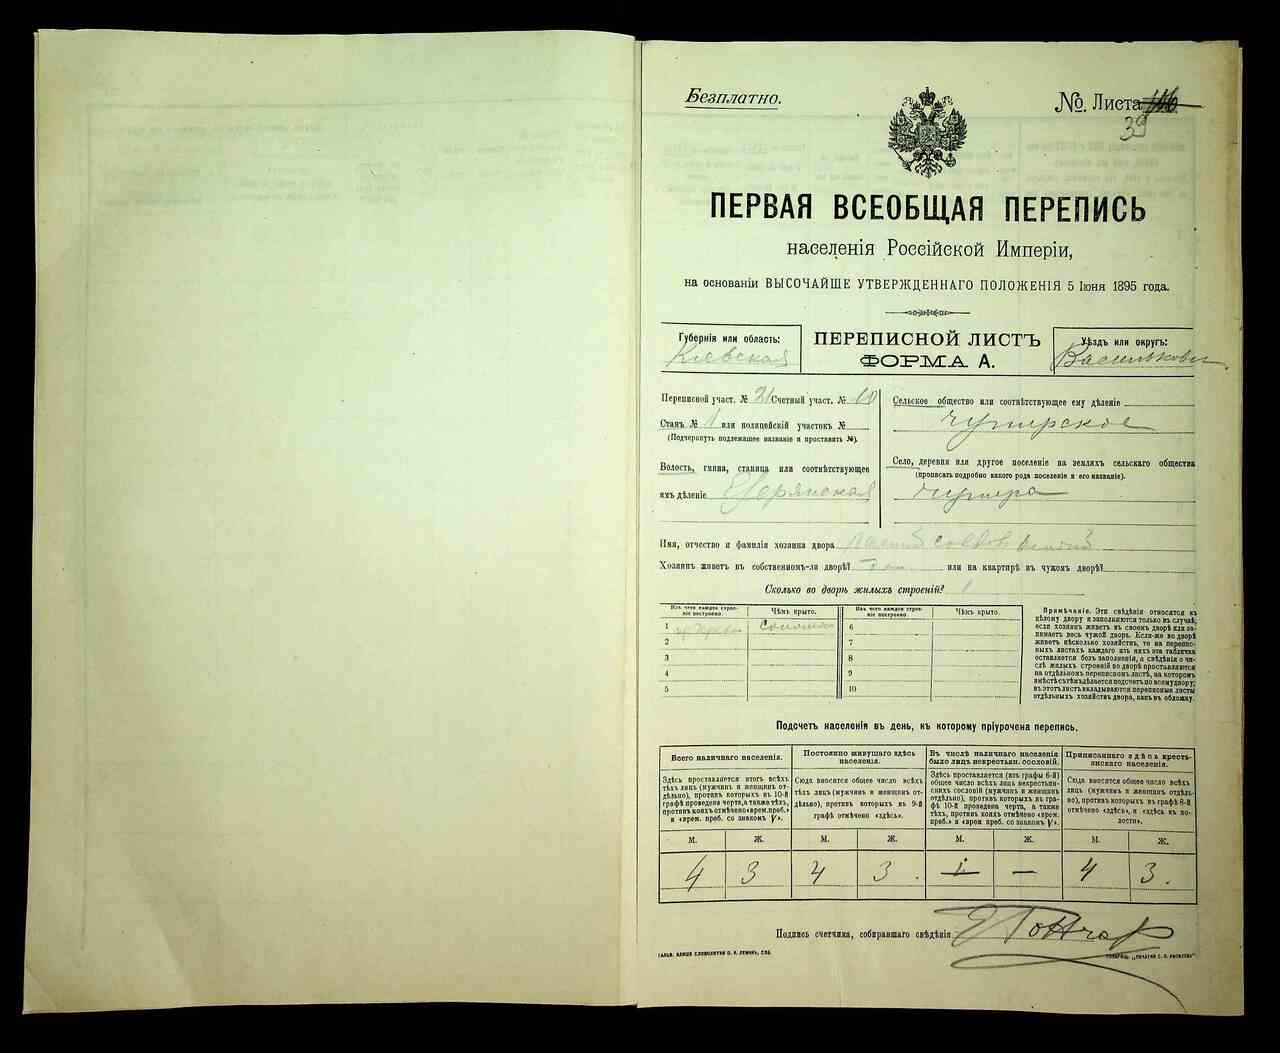 Безплатно.
№. Листа
39
ПЕРВАЯ ВСЕОБЩАЯ ПЕРЕПИСЬ
населенія Россійской Имперіи,
на основаніи ВЫСОЧАЙШЕ УТВЕРЖДЕННАГО ПОЛОЖЕНІЯ 5 Іюня 1895 года.
Губернія или область:
Кіевская
ПЕРЕПИСНОЙ ЛИСТЪ
ФОРМА А.
Уѣздъ или округъ:
Васильков
Переписной участ. № 21 Счетный участ. № 10
Станъ № 1 или полицейскій участокъ №
(Подчеркнуть подлежащее названіе и проставить №).
Волость, гмина, станица или соотвѣтствующее
имъ дѣленіе
Сельское общество или соотвѣтствующее ему дѣленіе
Чупирское
Село, деревня или другое поселеніе на земляхъ сельскаго общества
(прописать подробно какого рода поселеніе и его названіе).
Чупира
Имя, отчество и фамилія хозяина двора
Хозяинъ живетъ въ собственномъ-ли дворѣ? или на квартирѣ въ чужомъ дворѣ?
Сколько во дворѣ жилыхъ строеній? 1
Изъ чего каждое строеніе построено.
Чѣмъ крыто.
Изъ чего каждое строеніе построено.
Чѣмъ крыто.
1 Соломою 6
2 7
3 8
4 9
5 10
Примѣчаніе. Эти свѣдѣнія относятся къ
цѣлому двору и заполняются только въ случаѣ,
если хозяинъ живетъ въ своемъ дворѣ или занимаетъ
весь чужой дворъ. Если-же во дворѣ
живетъ нѣсколько хозяйствъ, то на переписныхъ
листахъ каждаго изъ нихъ эта табличка
оставляется безъ заполненія, а свѣдѣнія о числѣ
жилыхъ строеній во дворѣ проставляются
на отдѣльномъ переписномъ листѣ, на которомъ
вмѣстѣ съ тѣмъ дѣлается подсчетъ по всему двору;
въ этотъ листъ вкладываются переписные листы
отдѣльныхъ хозяйствъ двора, какъ въ обложку.
Подсчетъ населенія въ день, къ которому пріурочена перепись.
Всего наличнаго населенія.
Здѣсь проставляется итогъ всѣхъ
тѣхъ лицъ (мужчинъ и женщинъ отдѣльно),
противъ которыхъ въ 10-й
графѣ проведена черта, а также тѣхъ,
противъ коихъ отмѣчено «врем. преб.»
и «врем. преб. со знакомъ V».
Постоянно живущаго здѣсь
населенія.
Сюда вносится общее число всѣхъ
тѣхъ лицъ (мужчинъ и женщинъ отдѣльно),
противъ которыхъ въ 9-й
графѣ отмѣчено «здѣсь».
Въ числѣ наличнаго населенія
было лицъ некрестьян. сословій.
Здѣсь проставляется (изъ графы 6-й)
общее число всѣхъ лицъ некрестьянскихъ
сословій (мужчинъ и женщинъ
отдѣльно), противъ которыхъ въ графѣ
10-й проведена черта, а также
тѣхъ, противъ коихъ отмѣчено «врем.
преб.» и «врем. преб. со знакомъ V».
Приписаннаго здѣсь крестьянскаго
населенія.
Сюда вносится общее число всѣхъ
лицъ (мужчинъ и женщинъ отдѣльно),
противъ которыхъ въ графѣ 8-й
отмѣчено «здѣсь», и «здѣсь къ волости».
М. Ж. М. Ж. М. Ж. М. Ж.
4 3 4 3. — 4 3.
Подпись счетчика, собиравшаго свѣдѣнія Гончар